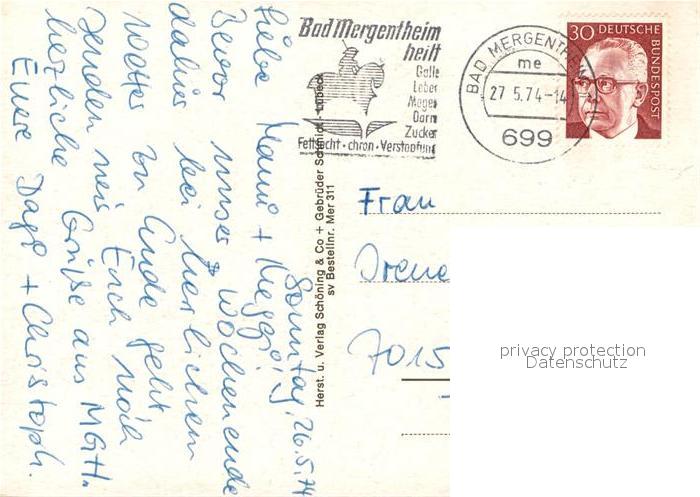 Bad Mergentheim
heilt
Galle
Leber
Magen
Darm
Zucker
Fettsucht · chron · Verstopfung
BAD MERGENTHEIM
me
27.5.74-14
699
30 DEUTSCHE BUNDESPOST
Sonntag, 26.5.74
Liebe Mami + Meggi!
Bevor unser Wochenende
dahier bei herrlichem
Wetter zu Ende geht
senden wir Euch noch
herzliche Grüße aus MGH.
Eure Dage + Christoph.
Herst. u. Verlag Schöning & Co + Gebrüder Schmidt · Lübeck
sv Bestellnr. Mer 311
Frau
Irene
7015
privacy protection
Datenschutz